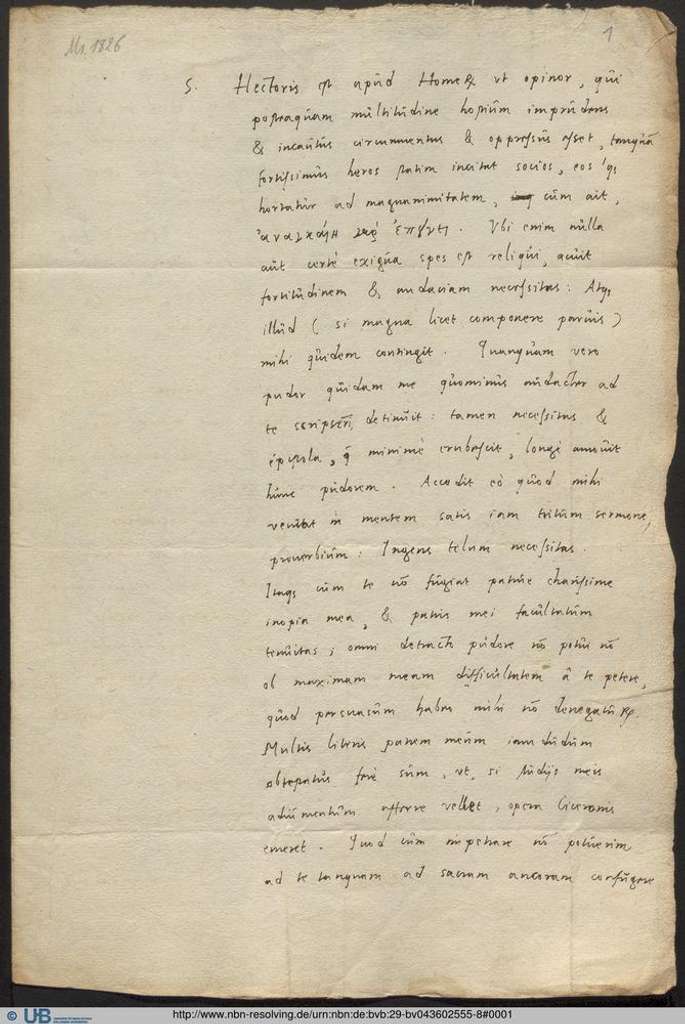 Ms. 1826
1
S. Hectoris est apud Home℞ ut opinor, qui
postaquam multitudine hostium imprudens
& incautus circumuentus & oppressus esset, tanquã
fortissimus heros statim incitat socios, eos'q;
hortatur ad magnanimitatem, cum ait,
γαρ. Vbi enim nulla
aut certè exigua spes est reliqui, acuit
fortitudinem & audaciam necessitas: Atq;
illud ( si magna licet componere paruis )
mihi quidem contingit. Quanquam vero
pudor quidam me quominus audacter ad
te detinuit: tamen necessitas &
epistola, q̃ minimè erubescit, longè amouit
hunc pudorem. Accedit eò quod mihi
venit in mentem satis iam tritum sermone,
prouerbium: Ingens telum necessitas.
Itaq; cum te nõ fugiat patrue charissime
inopia mea, & patris mei facultatum
tenuitas; omni detracto pudore nõ potui nõ
ob maximam meam difficultatem â te petere,
quod persuasum habeo mihi nõ denegatũ
Multis literis patrem meum iam dudum
obtestatus sum, vt, si studijs meis
adiumentum afferre vellet, opera Ciceronis
emeret. Quod cum impetrare nõ potuerim
ad te tanquam ad sacram ancoram confugere
© UB
http://www.nbn-resolving.de/urn:nbn:de:bvb:29-bv043602555-8#0001